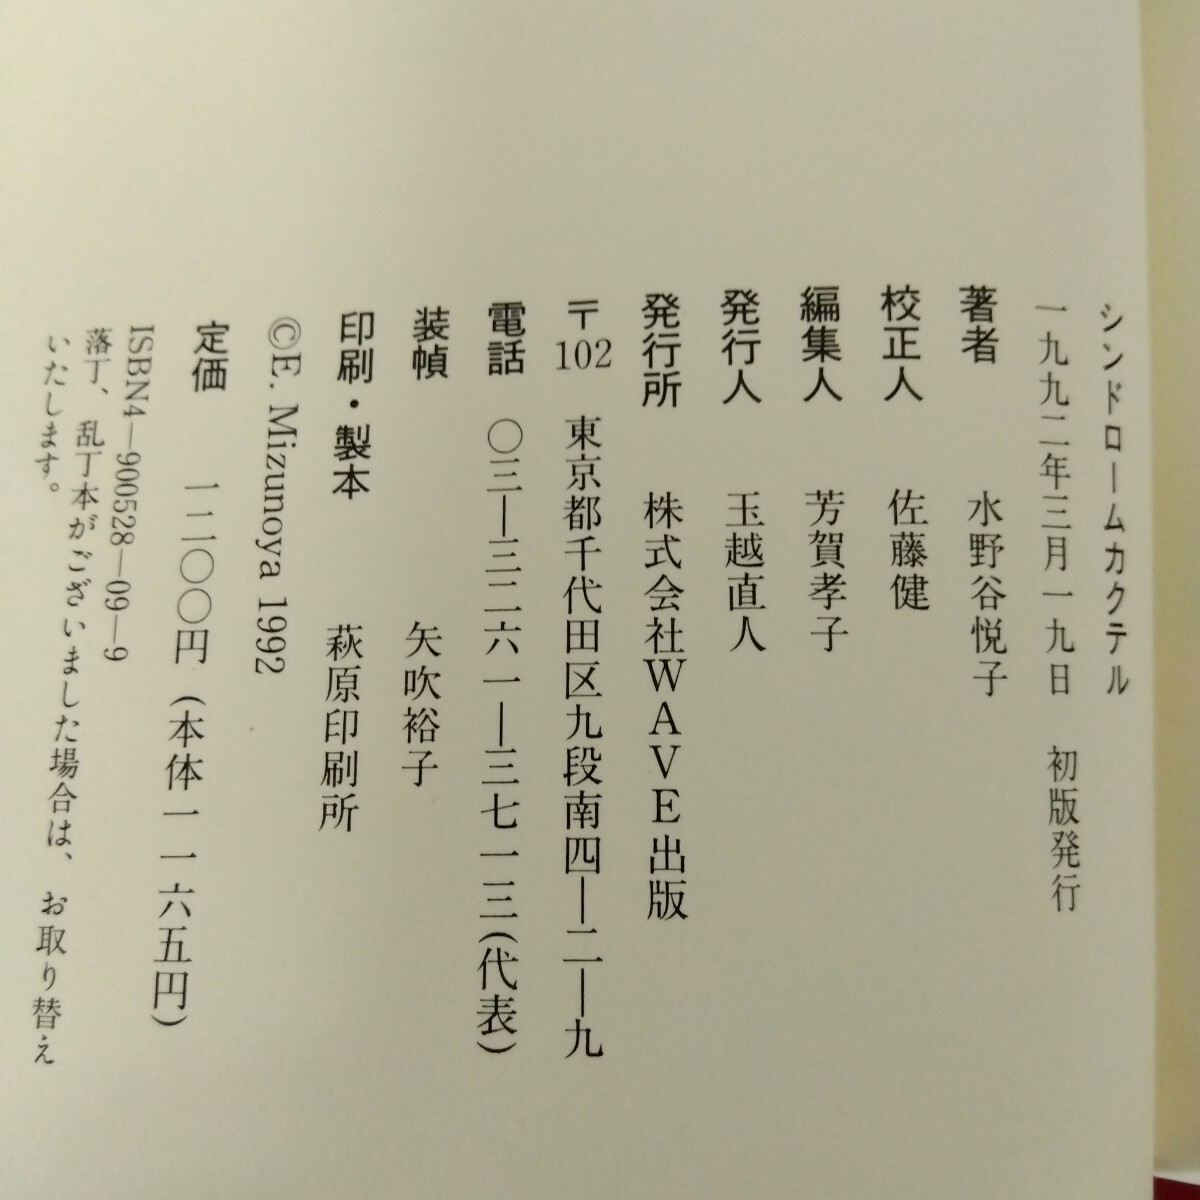 シンドロームカクテル
一九九二年三月一九日　初版発行
著者　水野谷悦子
校正人　佐藤健
編集人　芳賀孝子
発行人　玉越直人
発行所　株式会社ＷＡＶＥ出版
〒102　東京都千代田区九段南四—二—九
電話　〇三—三二六一—三七一三（代表）
装幀　矢吹裕子
印刷・製本　萩原印刷所
©E. Mizunoya 1992
定価　一二〇〇円（本体一一六五円）
ISBN4—900528—09—9
落丁、乱丁本がございました場合は、お取り替え
いたします。